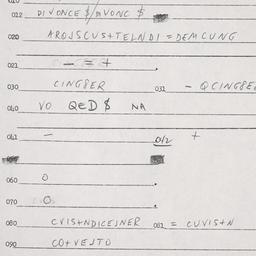 012 DIVONCE $/MVONC $
020 AROJSCUS+TELNDI = DEMCUNG
021 - = +
030 CINGBER 031 - QCINGBE
040 VO QED $ NA
041 - 012 +
060 0
070 0
080 CVIS+NDICEJNER 081 = CUVIS+N
090 CO+VEJTO